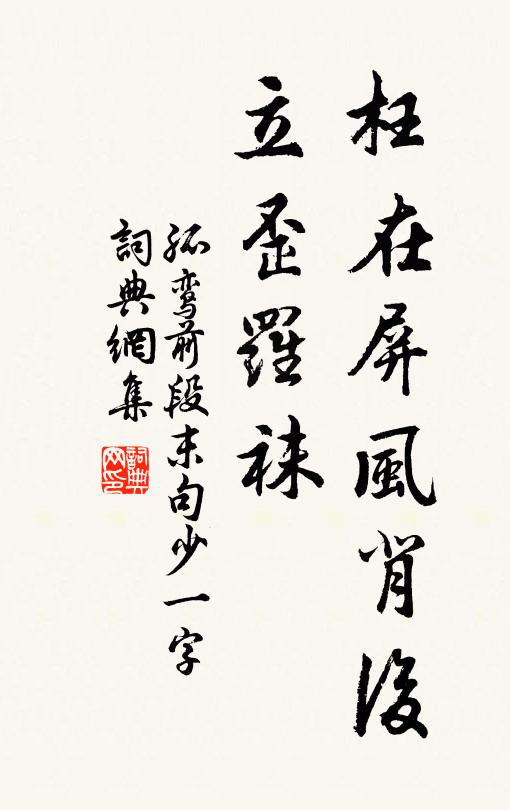 枉在屏風背後
立歪羅袜
孤鸾前段末句少一字
詞典網集
詞典网印